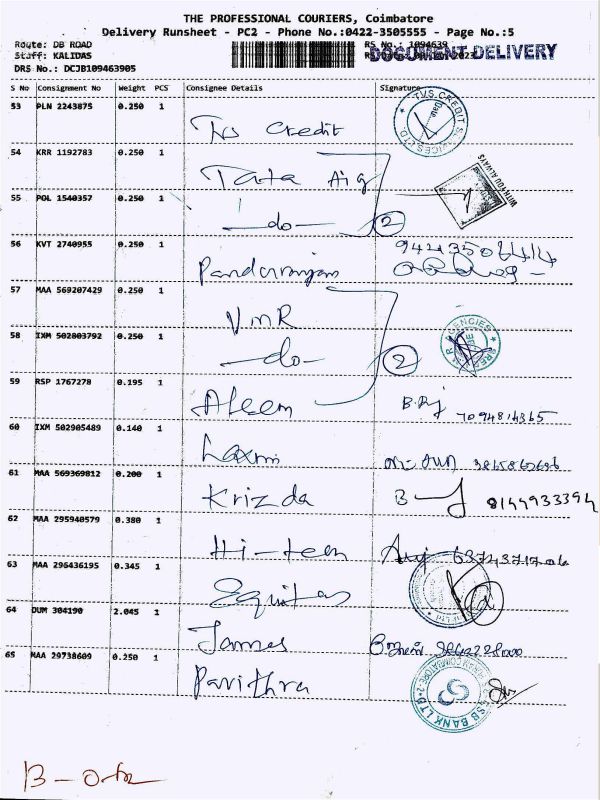 THE PROFESSIONAL COURIERS, Coimbatore
Delivery Runsheet - PC2 - Phone No.:0422-3505555 - Page No.:5
Route: DB ROAD
RS No.: 1094639
DOCUMENT DELIVERY
Staff: KALIDAS
DRS No.: DCJB109463905
S No Consignment No Weight PCS Consignee Details Signature
53 PLN 2243875 0.250 1
Tvs Credit
TVS CREDIT SERVICES LTD
54 KRR 1192783 0.250 1
Tata Aig
WITH YOU ALWAYS
55 POL 1540357 0.250 1
-do- 2
56 KVT 2740955 0.250 1
Pandurangan
57 MAA 569207429 0.250 1
VMR
58 IXM 502803792 0.250 1
-do- 2
AGENCIES
59 RSP 1767278 0.195 1
Aleem
60 IXM 502905489 0.140 1
Laxmi
61 MAA 569369812 0.200 1
Krizda
8144933394
62 MAA 295940579 0.380 1
Hi-tech
63 MAA 296436195 0.345 1
Equitas
64 DUM 304190 2.045 1
James
65 MAA 29738609 0.250 1
Pavithra